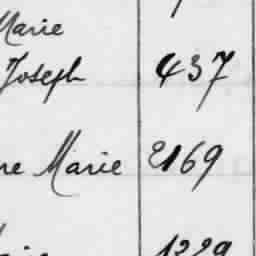 Marie
Joseph 437
ne Marie 2169
1229